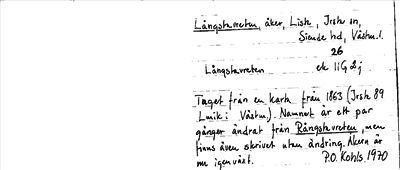 Långstuvreten, åker, Liste, Irsta sn,
Siende hd, Västm. l.
26
Långstuvreten ek 11G 2j
Taget från en karta från 1863 (Irsta 89
Lmk i Västm.). Namnet är ett par
gånger ändrat från Rångstuvreten, men
finns även skrivet utan ändring. Åkern är
nu igenväxt. P.O. Kohls 1970